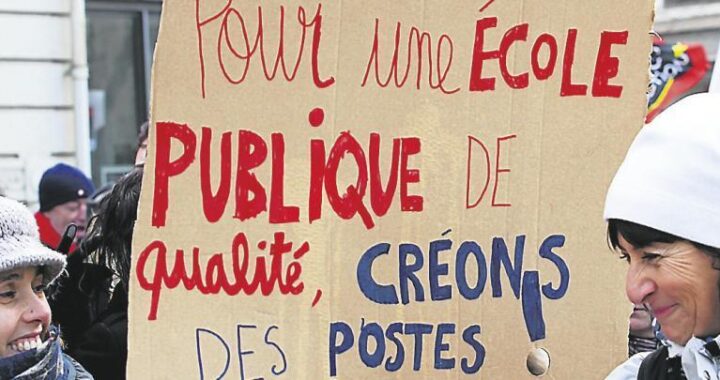 Pour une ÉCOLE
PUBLIQUE DE
qualité, CRÉONS
DES POSTES !